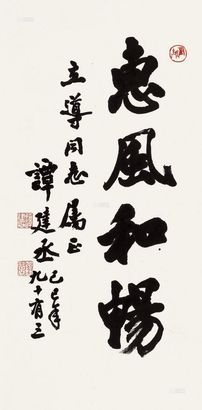 惠風和暢
立導同志屬正
譚建丞己巳年
九十有三